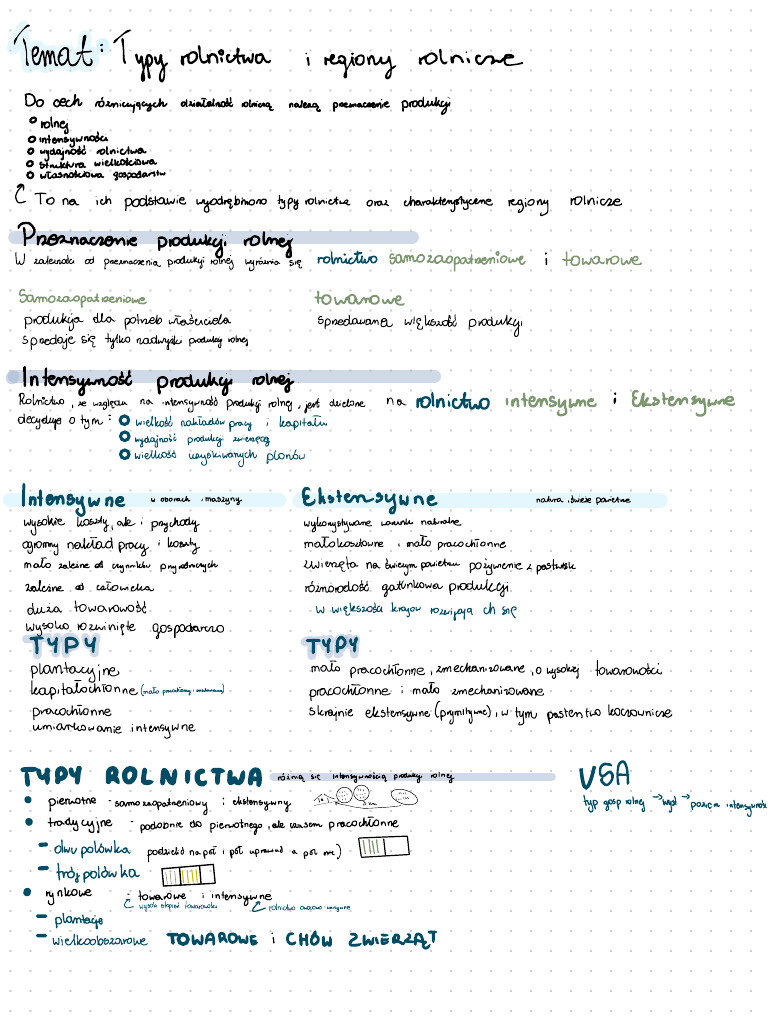 Temat: Typy rolnictwa i regiony rolnicze
Do cech różnicujących działalność rolniczą należą przeznaczenie produkcji
rolnej
intensywności
wydajność rolnictwa
struktura wielkościowa
własnościowa gospodarstw
To na ich podstawie wyodrębniono typy rolnictwa oraz charakterystyczne regiony rolnicze
Przeznaczenie produkcji rolnej
W zależności od przeznaczenia produkcji rolnej wyróżnia się rolnictwo samozaopatrzeniowe i towarowe
Samozaopatrzeniowe
towarowe
produkcja dla potrzeb właściciela
sprzedawana większość produkcji
sprzedaje się tylko nadwyżki produkcji rolnej
Intensywność produkcji rolnej
Rolnictwo, ze względu na intensywność produkcji rolnej, jest dzielone na rolnictwo intensywne i Ekstensywne
decyduje o tym: wielkość nakładów pracy i kapitału
wydajność produkcji zwierzęcej
wielkość uzyskiwanych plonów
Intensywne w oborach i maszyny
Ekstensywne natura i świeże powietrze
wysokie koszty, ale i przychody
wykorzystywane warunki naturalne
ogromny nakład pracy i koszty
małokosztowne i mało pracochłonne
mało zależne od czynników przyrodniczych
zwierzęta na świeżym powietrzu pożywienie z pastwisk
zależne od człowieka
różnorodość gatunkowa produkcji
duża towarowość
w większości krajów rozwijają ch się
wysoko rozwinięte gospodarczo
TYPY
TYPY
plantacyjne
mało pracochłonne, zmechanizowane, o wysokiej towarowości
kapitałochłonne (mało pracochłonny i zmechanizowany)
pracochłonne i mało zmechanizowane
pracochłonne
skrajnie ekstensywne (prymitywne), w tym pasterstwo koczownicze
umiarkowanie intensywne
TYPY ROLNICTWA różnią się intensywnością produkcji rolnej
USA
pierwotne - samozaopatrzeniowy i ekstensywny
typ gosp rolnej → → poziom intensywności
tradycyjne - podobnie do pierwotnego, ale czasem pracochłonne
dwupolówka podzielić na pół i pół uprawiać a pół nie)
trójpolówka
rynkowe - towarowe i intensywne
wysoki stopień towarowości rolnictwo owocowo-warzywne
plantacje
wielkoobszarowe TOWAROWE i CHÓW ZWIERZĄT